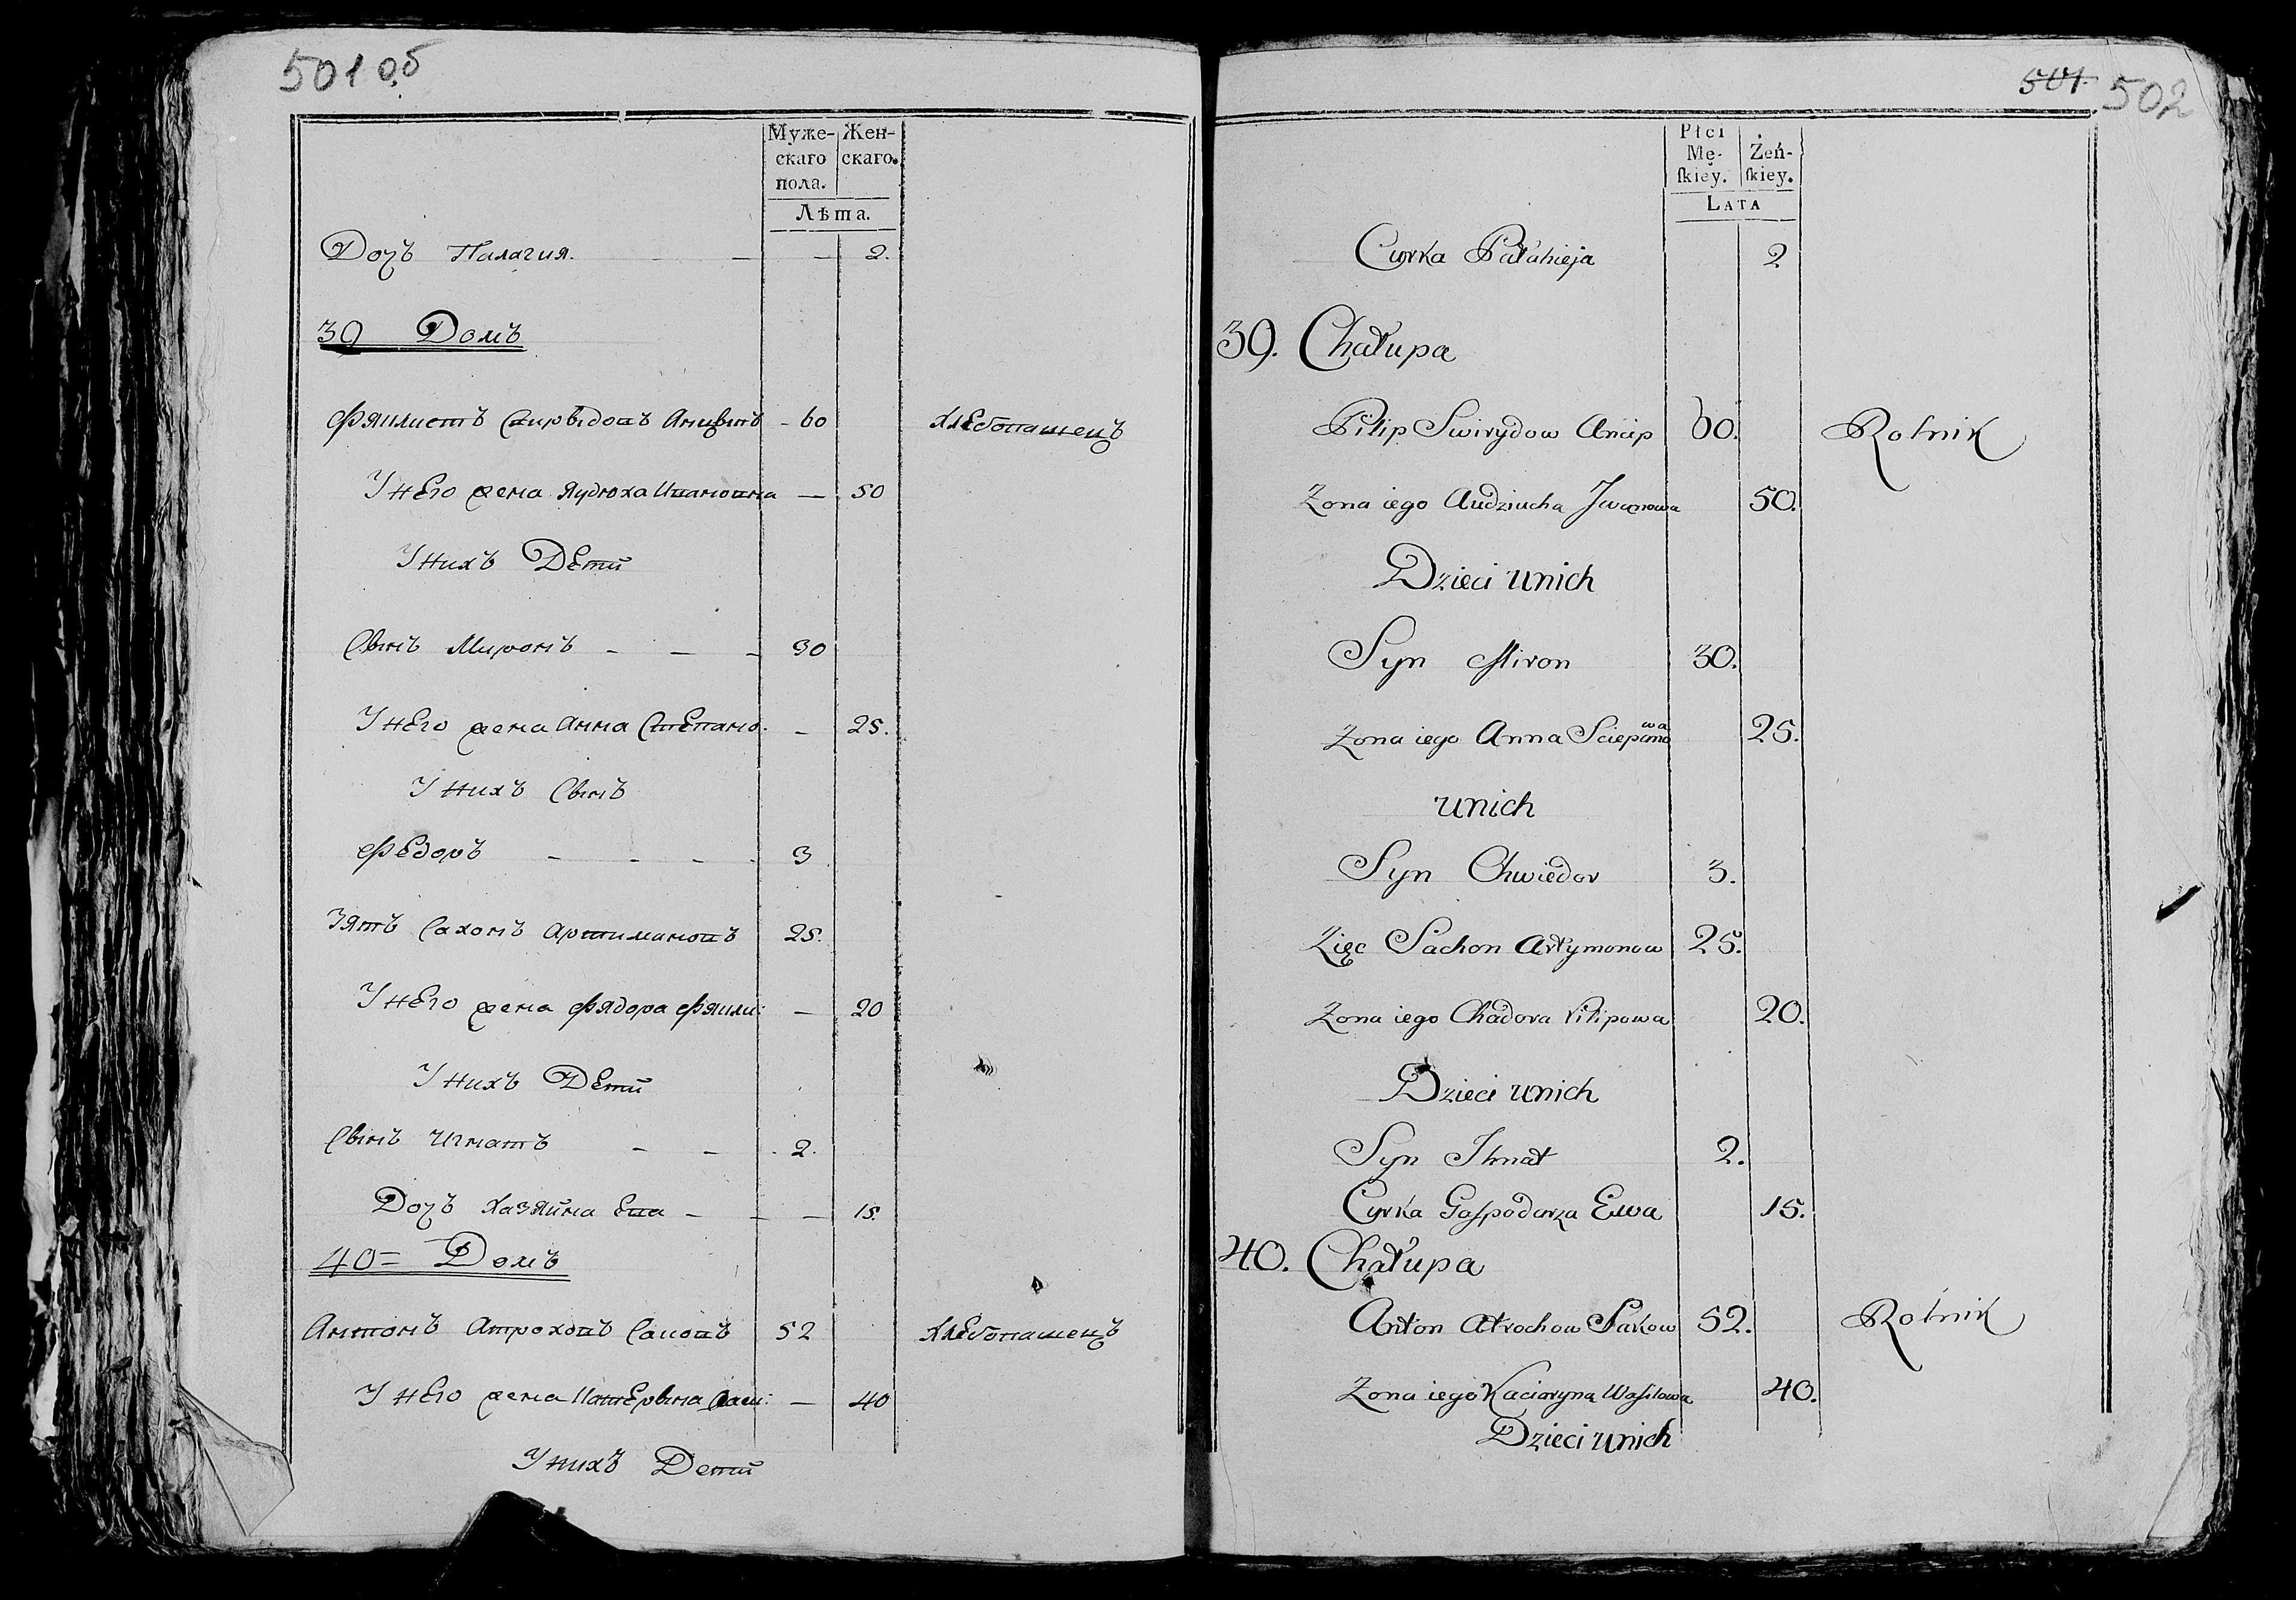 501 об
Муже-
скаго
пола.
Жен-
скаго.
Лѣта.
Дочь Палагия. 2.
39 Домъ
Фяилистъ Свиры́довъ Анцыпъ 60 хлебопашецъ
У него жена Яудюха Ивановна 50
У нихъ Дети
Сынъ Миронъ 30
У него жена Анна Степано: 25.
У нихъ Сынъ
Федоръ 3
Зять Сахонъ Артимановъ 25.
У него жена Фядора Фяили: 20
У нихъ Дети
Сынъ Игнатъ 2.
Дочъ хазяйна Ева 15.
40= Домъ
Антонъ Атроховъ 52 хлебопашецъ
У него жена Катерына Васи: 40
У нихъ Дети
501. 502
Płci
Mę-
ſkiey.
Żeń-
ſkiey.
Lata
Curka Pałahieja 2
39. Chałupa
Pilip Swirydow Ancip 60. Rolnik
Zona iego Audziucha Jwanowa 50.
Dzieci unich
Syn Miron 30.
Zona iego Anna Sciepanowa 25.
unich
Syn Chwiedor 3.
Zięc Sachon Artymonow 25.
Zona iego Chadora Pilipowa 20.
Dzieci unich
Syn Ihnat 2.
Curka Goſpodarza Ewa 15.
40. Chałupa
Anton Atrochow Sakow 52. Rolnik
Zona iego Kaciaryna Waſilowa 40.
Dzieci unich